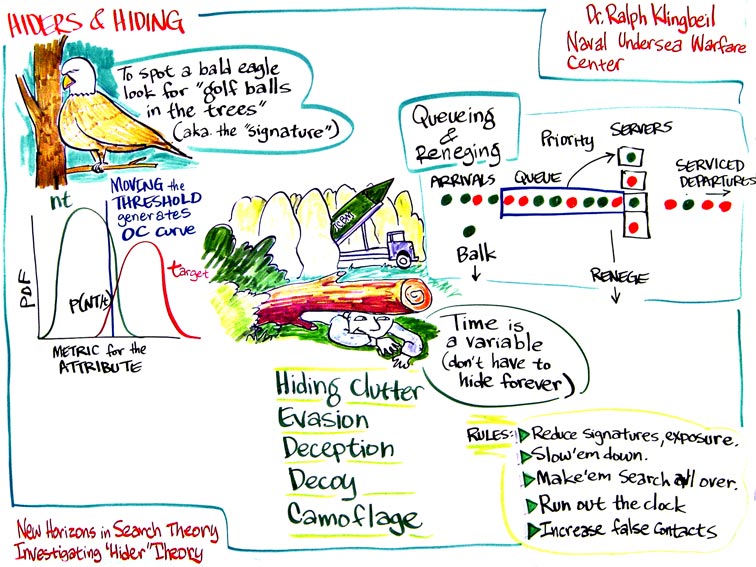 HIDERS & HIDING
Dr. Ralph Klingbeil
Naval Undersea Warfare
Center
To spot a bald eagle
look for "golf balls
in the trees"
(aka. the "signature")
Queueing
&
Reneging
Priority
SERVERS
ARRIVALS
QUEUE
SERVICED
DEPARTURES
Balk
RENEGE
nt
MOVING the
THRESHOLD
generates
OC curve
target
PDF
P(NT/t
METRIC for the
ATTRIBUTE
ICBM
Time is
a variable
(don't have to
hide forever)
Hiding Clutter
Evasion
Deception
Decoy
Camoflage
RULES:
Reduce signatures, exposure.
Slow 'em down.
Make 'em search all over.
Run out the clock
Increase false contacts
New Horizons in Search Theory
Investigating "Hider" Theory